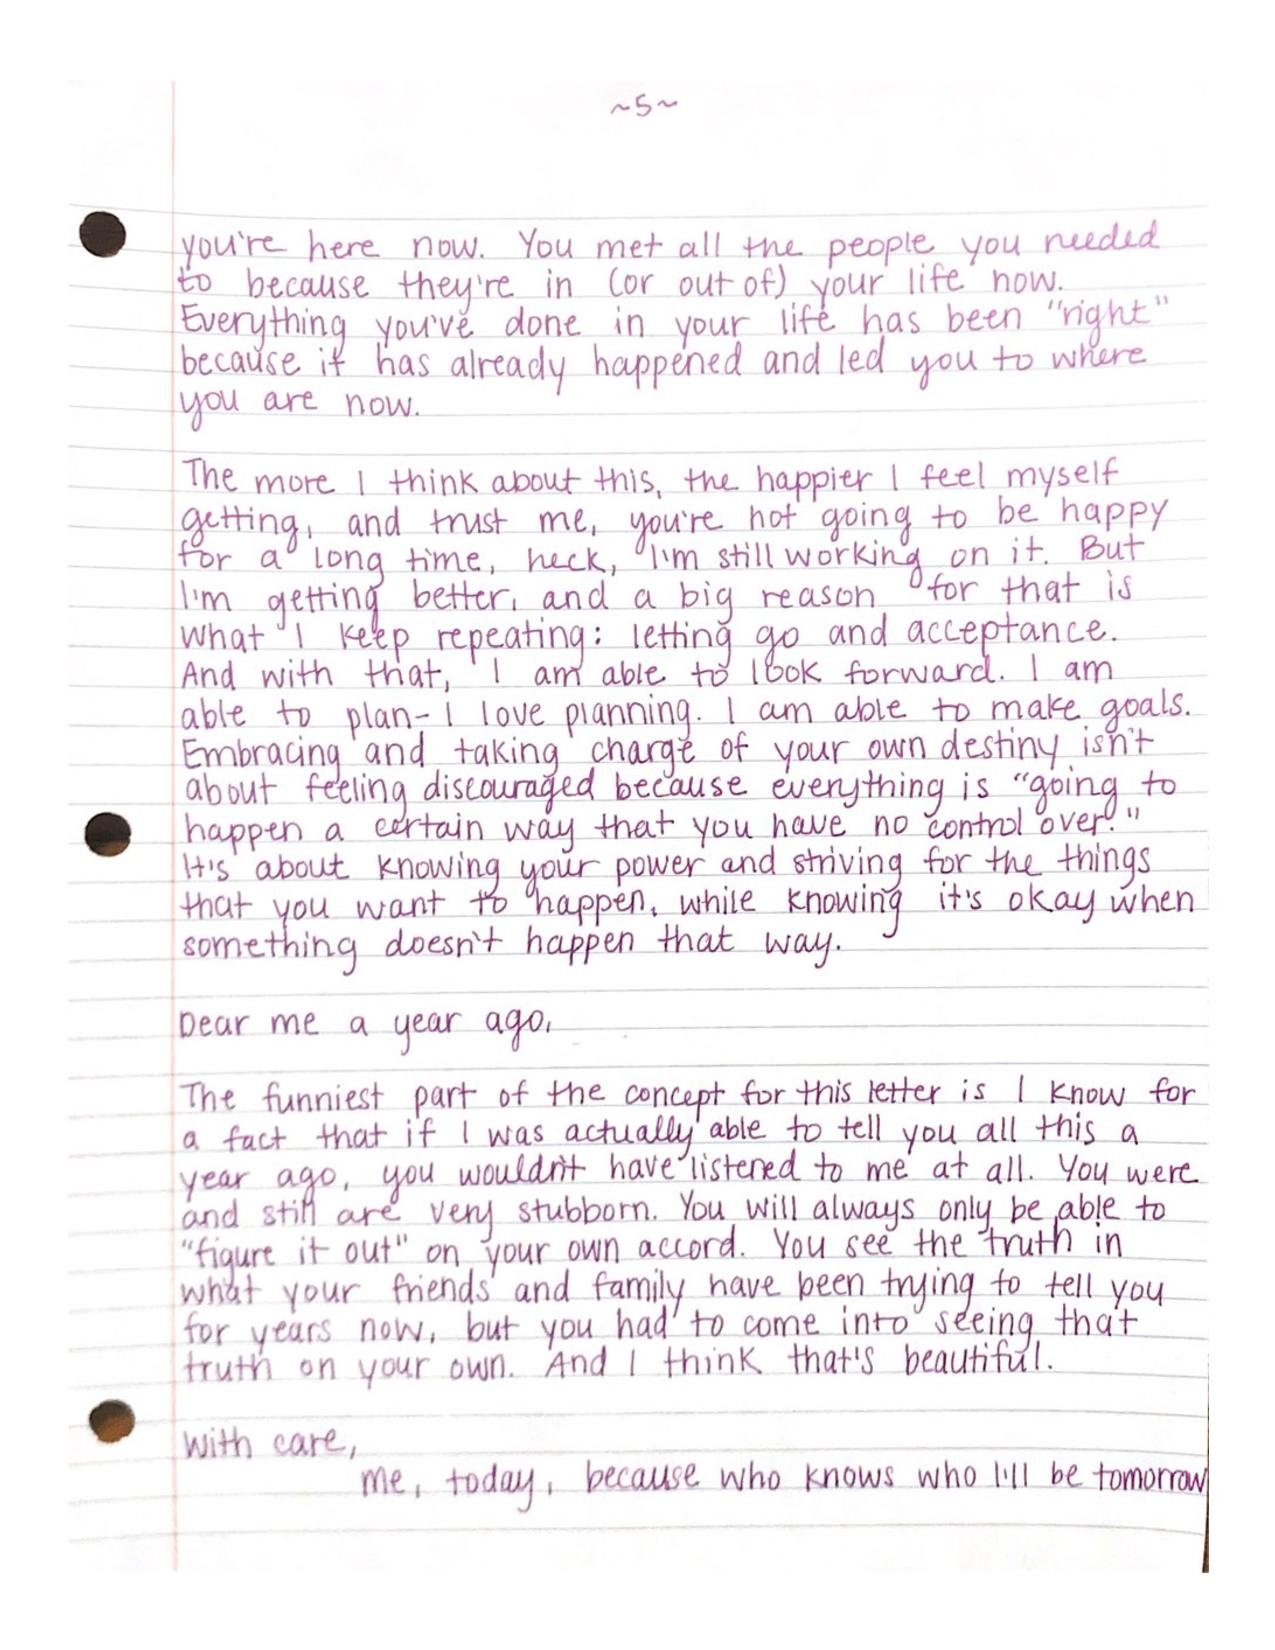 ~5~
you're here now. You met all the people you needed
to because they're in (or out of) your life now.
Everything you've done in your life has been "right"
because it has already happened and led you to where
you are now.
The more I think about this, the happier I feel myself
getting, and trust me, you're not going to be happy
for a long time, heck, I'm still working on it. But
I'm getting better, and a big reason for that is
what I keep repeating: letting go and acceptance.
And with that, I am able to look forward. I am
able to plan- I love planning. I am able to make goals.
Embracing and taking charge of your own destiny isn't
about feeling discouraged because everything is "going to
happen a certain way that you have no control over."
It's about knowing your power and striving for the things
that you want to happen, while knowing it's okay when
something doesn't happen that way.
Dear me a year ago,
The funniest part of the concept for this letter is I know for
a fact that if I was actually able to tell you all this a
year ago, you wouldn't have listened to me at all. You were
and still are very stubborn. You will always only be able to
"figure it out" on your own accord. You see the truth in
what your friends and family have been trying to tell you
for years now, but you had to come into seeing that
truth on your own. And I think that's beautiful.
With care,
me, today, because who knows who I'll be tomorrow